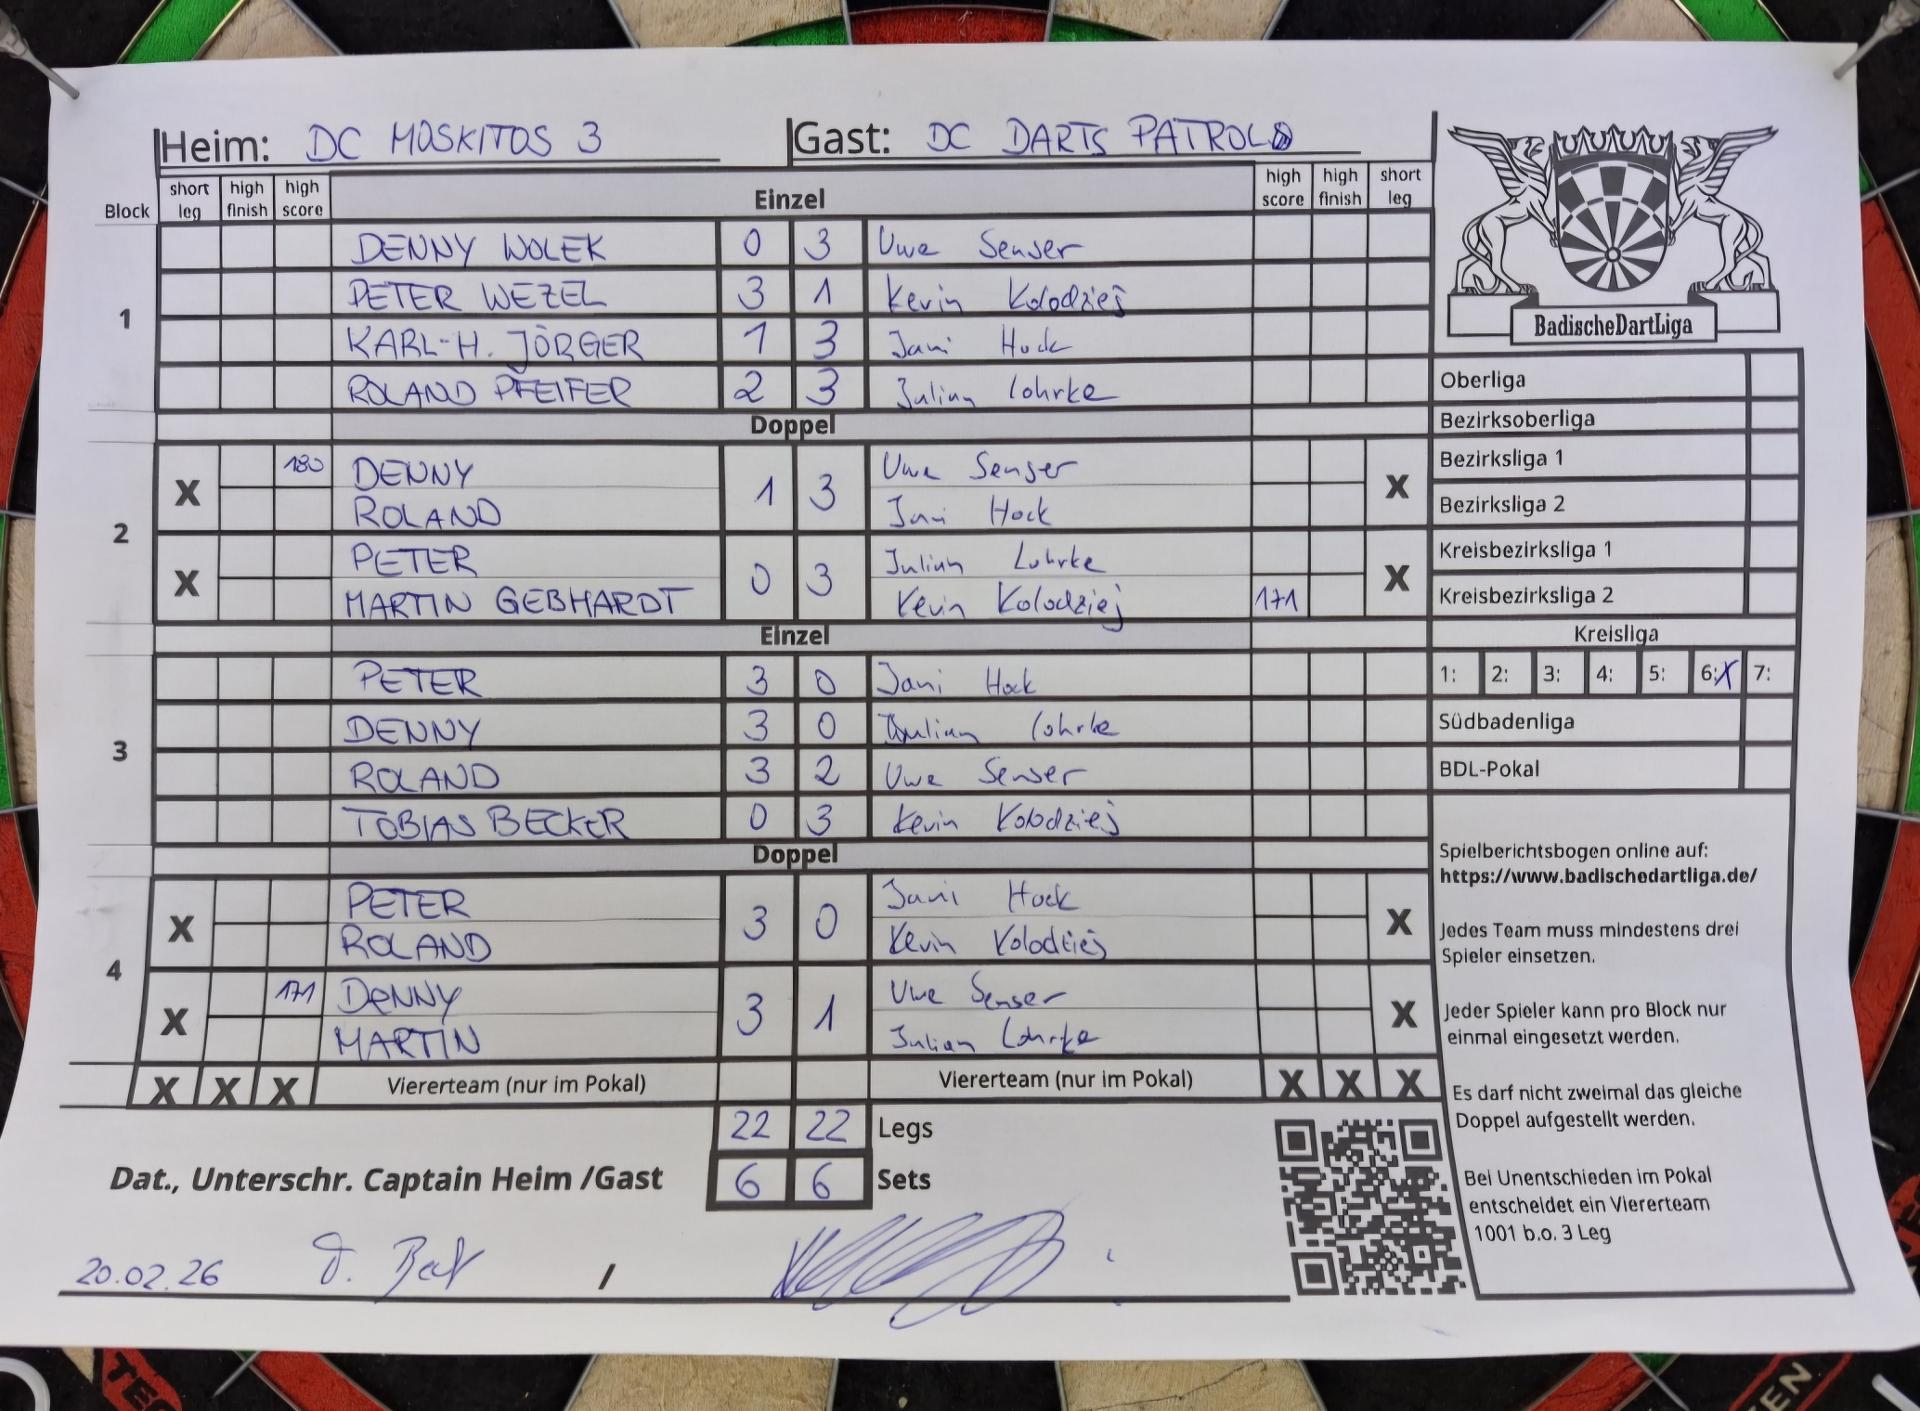 Heim: DC MOSKITOS 3 Gast: DC DARTS PATROL
Block short leg high finish high score Einzel high score high finish short leg
1
DENNY WOLEK 0 3 Uwe Senser
PETER WEZEL 3 1 Kevin Kolodziej
KARL-H. JÖRGER 1 3 Jani Hock
ROLAND PFEIFER 2 3 Julian Lohrke
Doppel
2
X 180 DENNY 1 3 Uwe Senser X
ROLAND Jani Hock
X PETER 0 3 Julian Lohrke X
MARTIN GEBHARDT Kevin Kolodziej 171
Einzel
3
PETER 3 0 Jani Hock
DENNY 3 0 Julian Lohrke
ROLAND 3 2 Uwe Senser
TOBIAS BECKER 0 3 Kevin Kolodziej
Doppel
4
X PETER 3 0 Jani Hock X
ROLAND Kevin Kolodziej
X 171 DENNY 3 1 Uwe Senser X
MARTIN Julian Lohrke
X X X Viererteam (nur im Pokal) Viererteam (nur im Pokal) X X X
22 22 Legs
Dat., Unterschr. Captain Heim /Gast 6 6 Sets
20.02.26 /
BadischeDartLiga
Oberliga
Bezirksoberliga
Bezirksliga 1
Bezirksliga 2
Kreisbezirksliga 1
Kreisbezirksliga 2
Kreisliga
1: 2: 3: 4: 5: 6: X 7:
Südbadenliga
BDL-Pokal
Spielberichtsbogen online auf:
https://www.badischedartliga.de/
Jedes Team muss mindestens drei
Spieler einsetzen.
Jeder Spieler kann pro Block nur
einmal eingesetzt werden.
Es darf nicht zweimal das gleiche
Doppel aufgestellt werden.
Bei Unentschieden im Pokal
entscheidet ein Viererteam
1001 b.o. 3 Leg